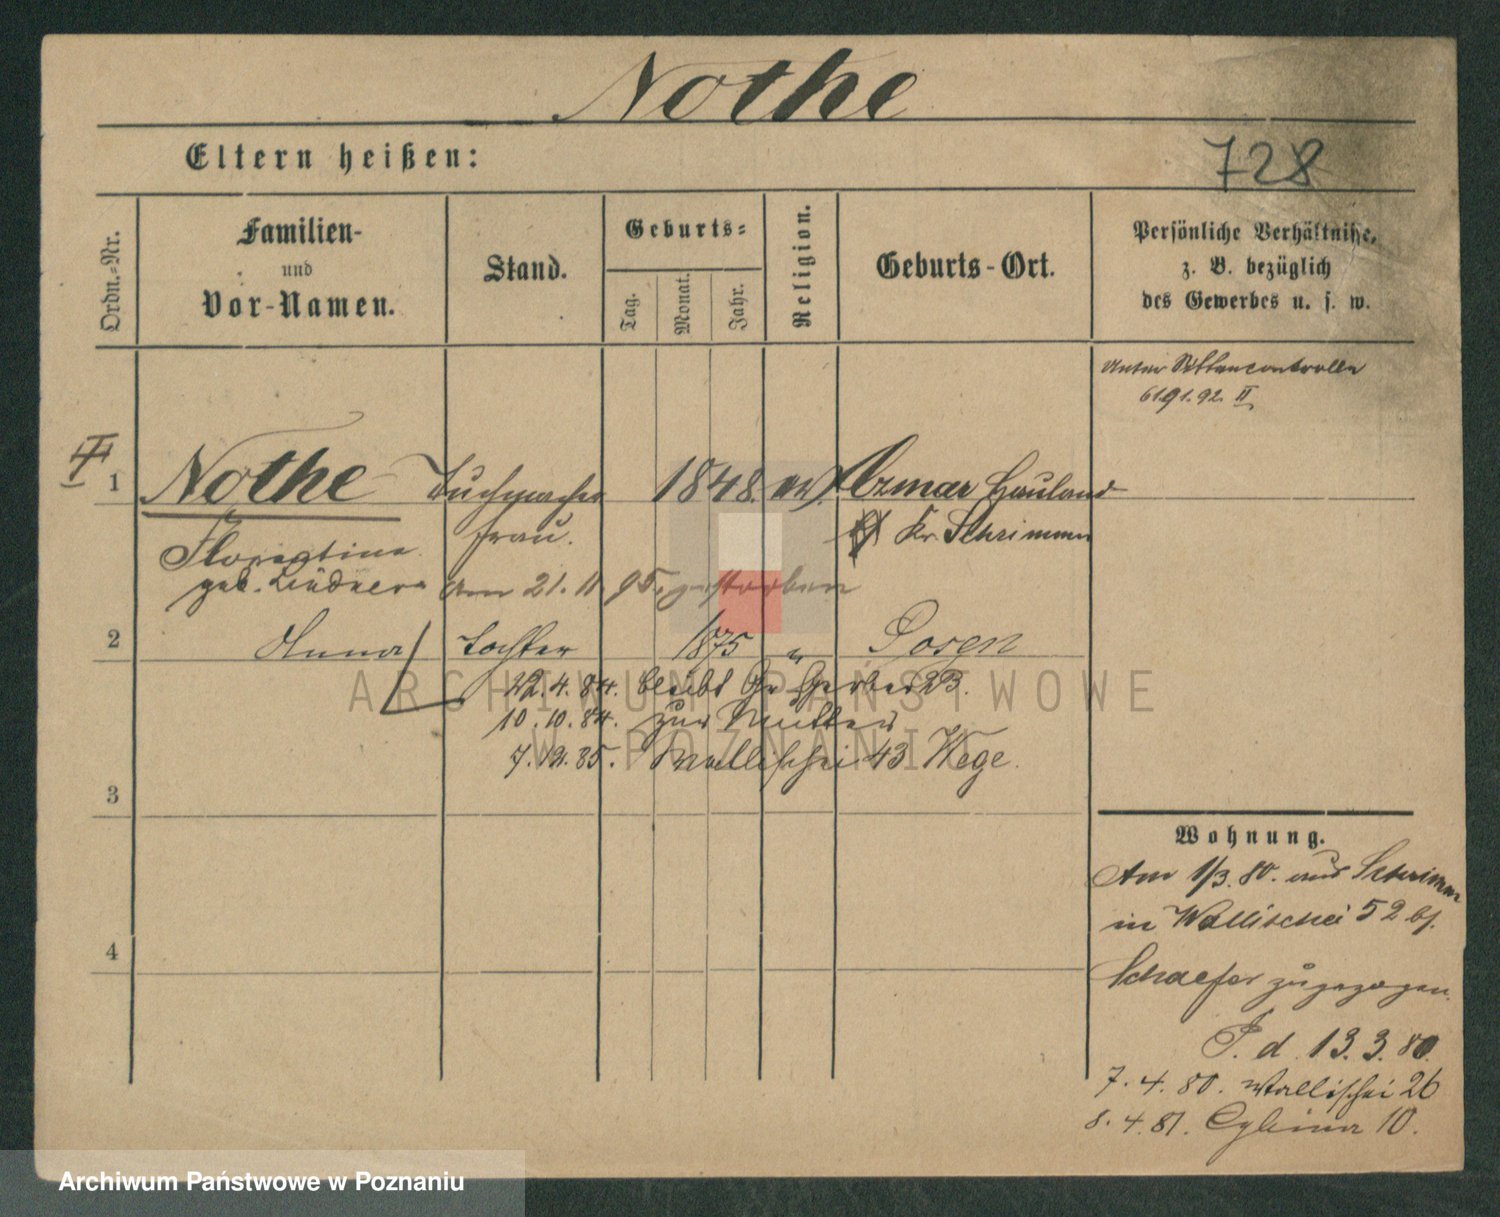 Nothe
728
Eltern heißen:
Ordn.-Nr.
Familien-
und
Vor-Namen.
Stand.
Geburts-
Tag.
Monat.
Jahr.
Religion.
Geburts-Ort.
Persönliche Verhältnisse,
z. B. bezüglich
des Gewerbes u. s. w.
Unter Sittencontrolle
II
1 Nothe Tuchmacher 1848. Hauland
Frau. Kr. Schrimm
Florentine
geb. Am 21. 11. 95. gestorben
2 Anna Tochter 1875 " Posen
12. 4. 84. bleibt Gr. Gerber 23.
10. 10. 84. zur Mutter
7. 12. 85. Wallischei 43 Wege.
3
4
Wohnung.
Am 1/3. 80. aus Schrimm
in Wallischei 52 bf.
Schaefer zugezogen.
P. d. 13. 3. 80.
7. 4. 80. Wallischei 26
8. 4. 81. Cybina 10.
ARCHIWUM PAŃSTWOWE
W POZNANIU
Archiwum Państwowe w Poznaniu